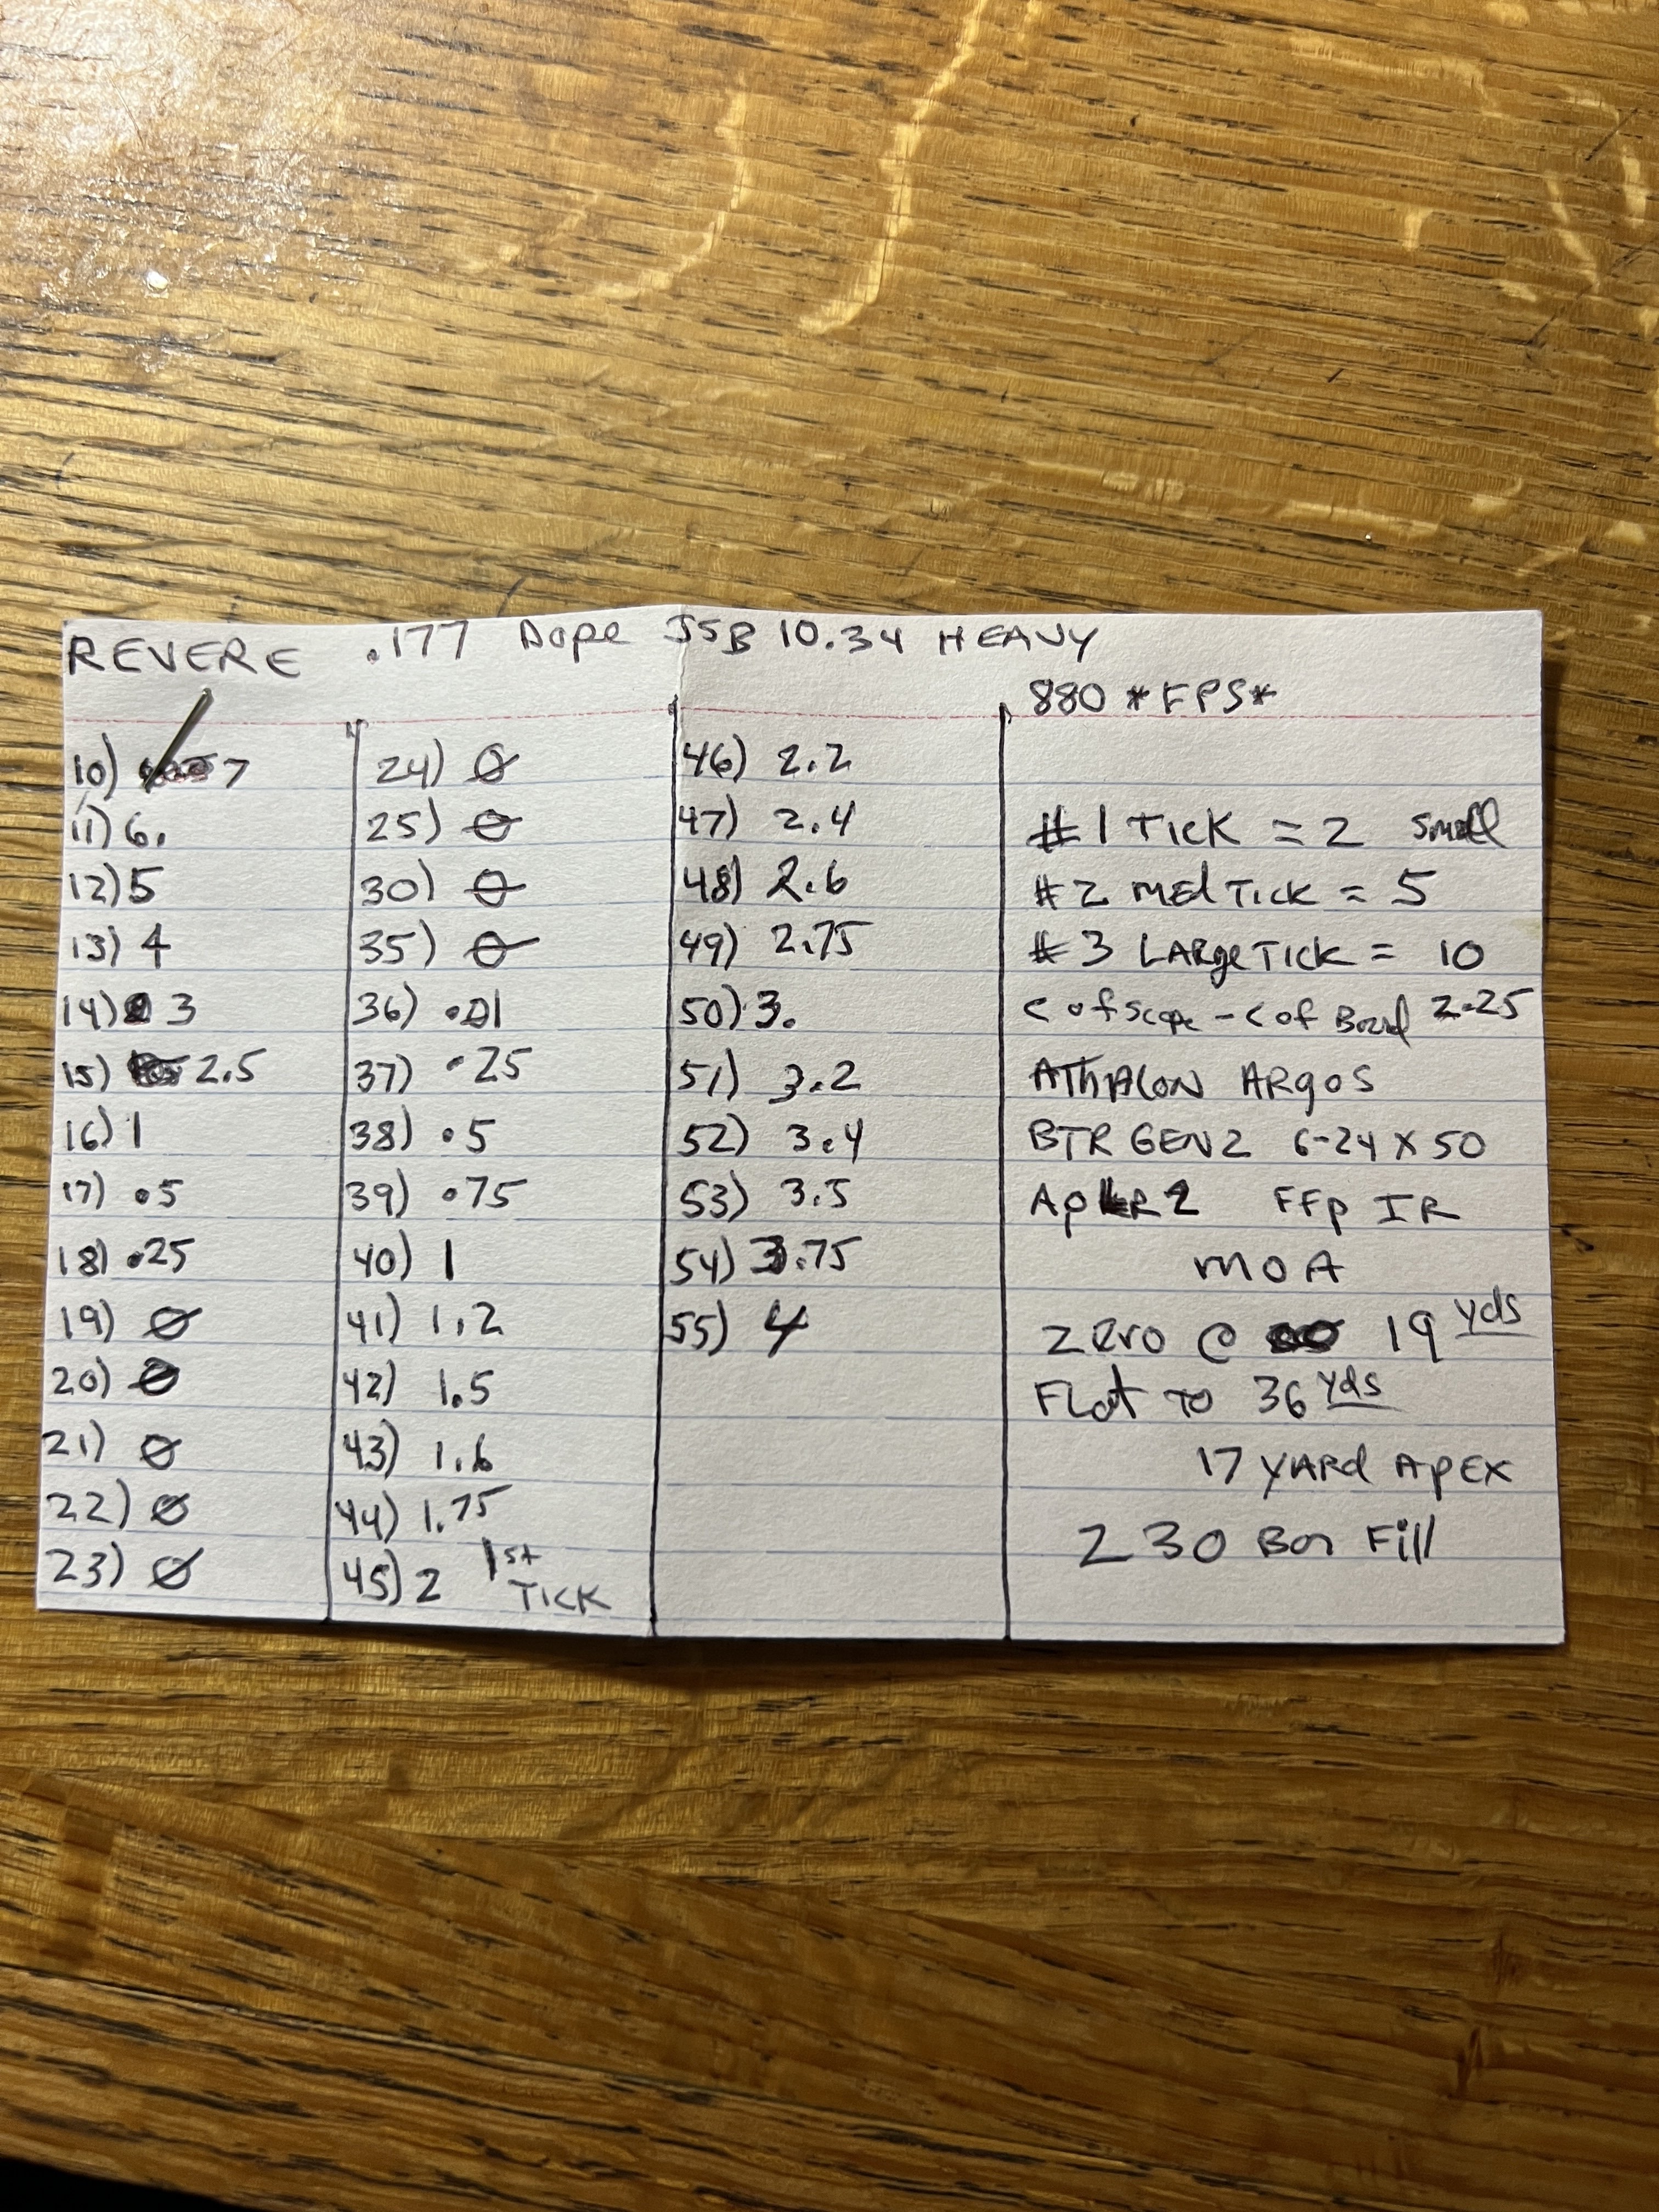 REVERE .177 Dope JSB 10.34 HEAVY
880 *FPS*
10) 7
11) 6.
12) 5
13) 4
14) 3
15) 2.5
16) 1
17) .5
18) .25
19) 0
20) 0
21) 0
22) 0
23) 0
24) 0
25) 0
30) 0
35) 0
36) .01
37) .25
38) .5
39) .75
40) 1
41) 1.2
42) 1.5
43) 1.6
44) 1.75
45) 2 1st TICK
46) 2.2
47) 2.4
48) 2.6
49) 2.75
50) 3.
51) 3.2
52) 3.4
53) 3.5
54) 3.75
55) 4
#1 TICK = 2 small
#2 Med TICK = 5
#3 LARge TICK = 10
C of Scope - C of Bored 2.25
AThALON ARgOS
BTR GEN2 6-24 X 50
APLR2 FFP IR
MOA
Zero @ 19 yds
Flat TO 36 yds
17 YARd APEX
230 Bar Fill